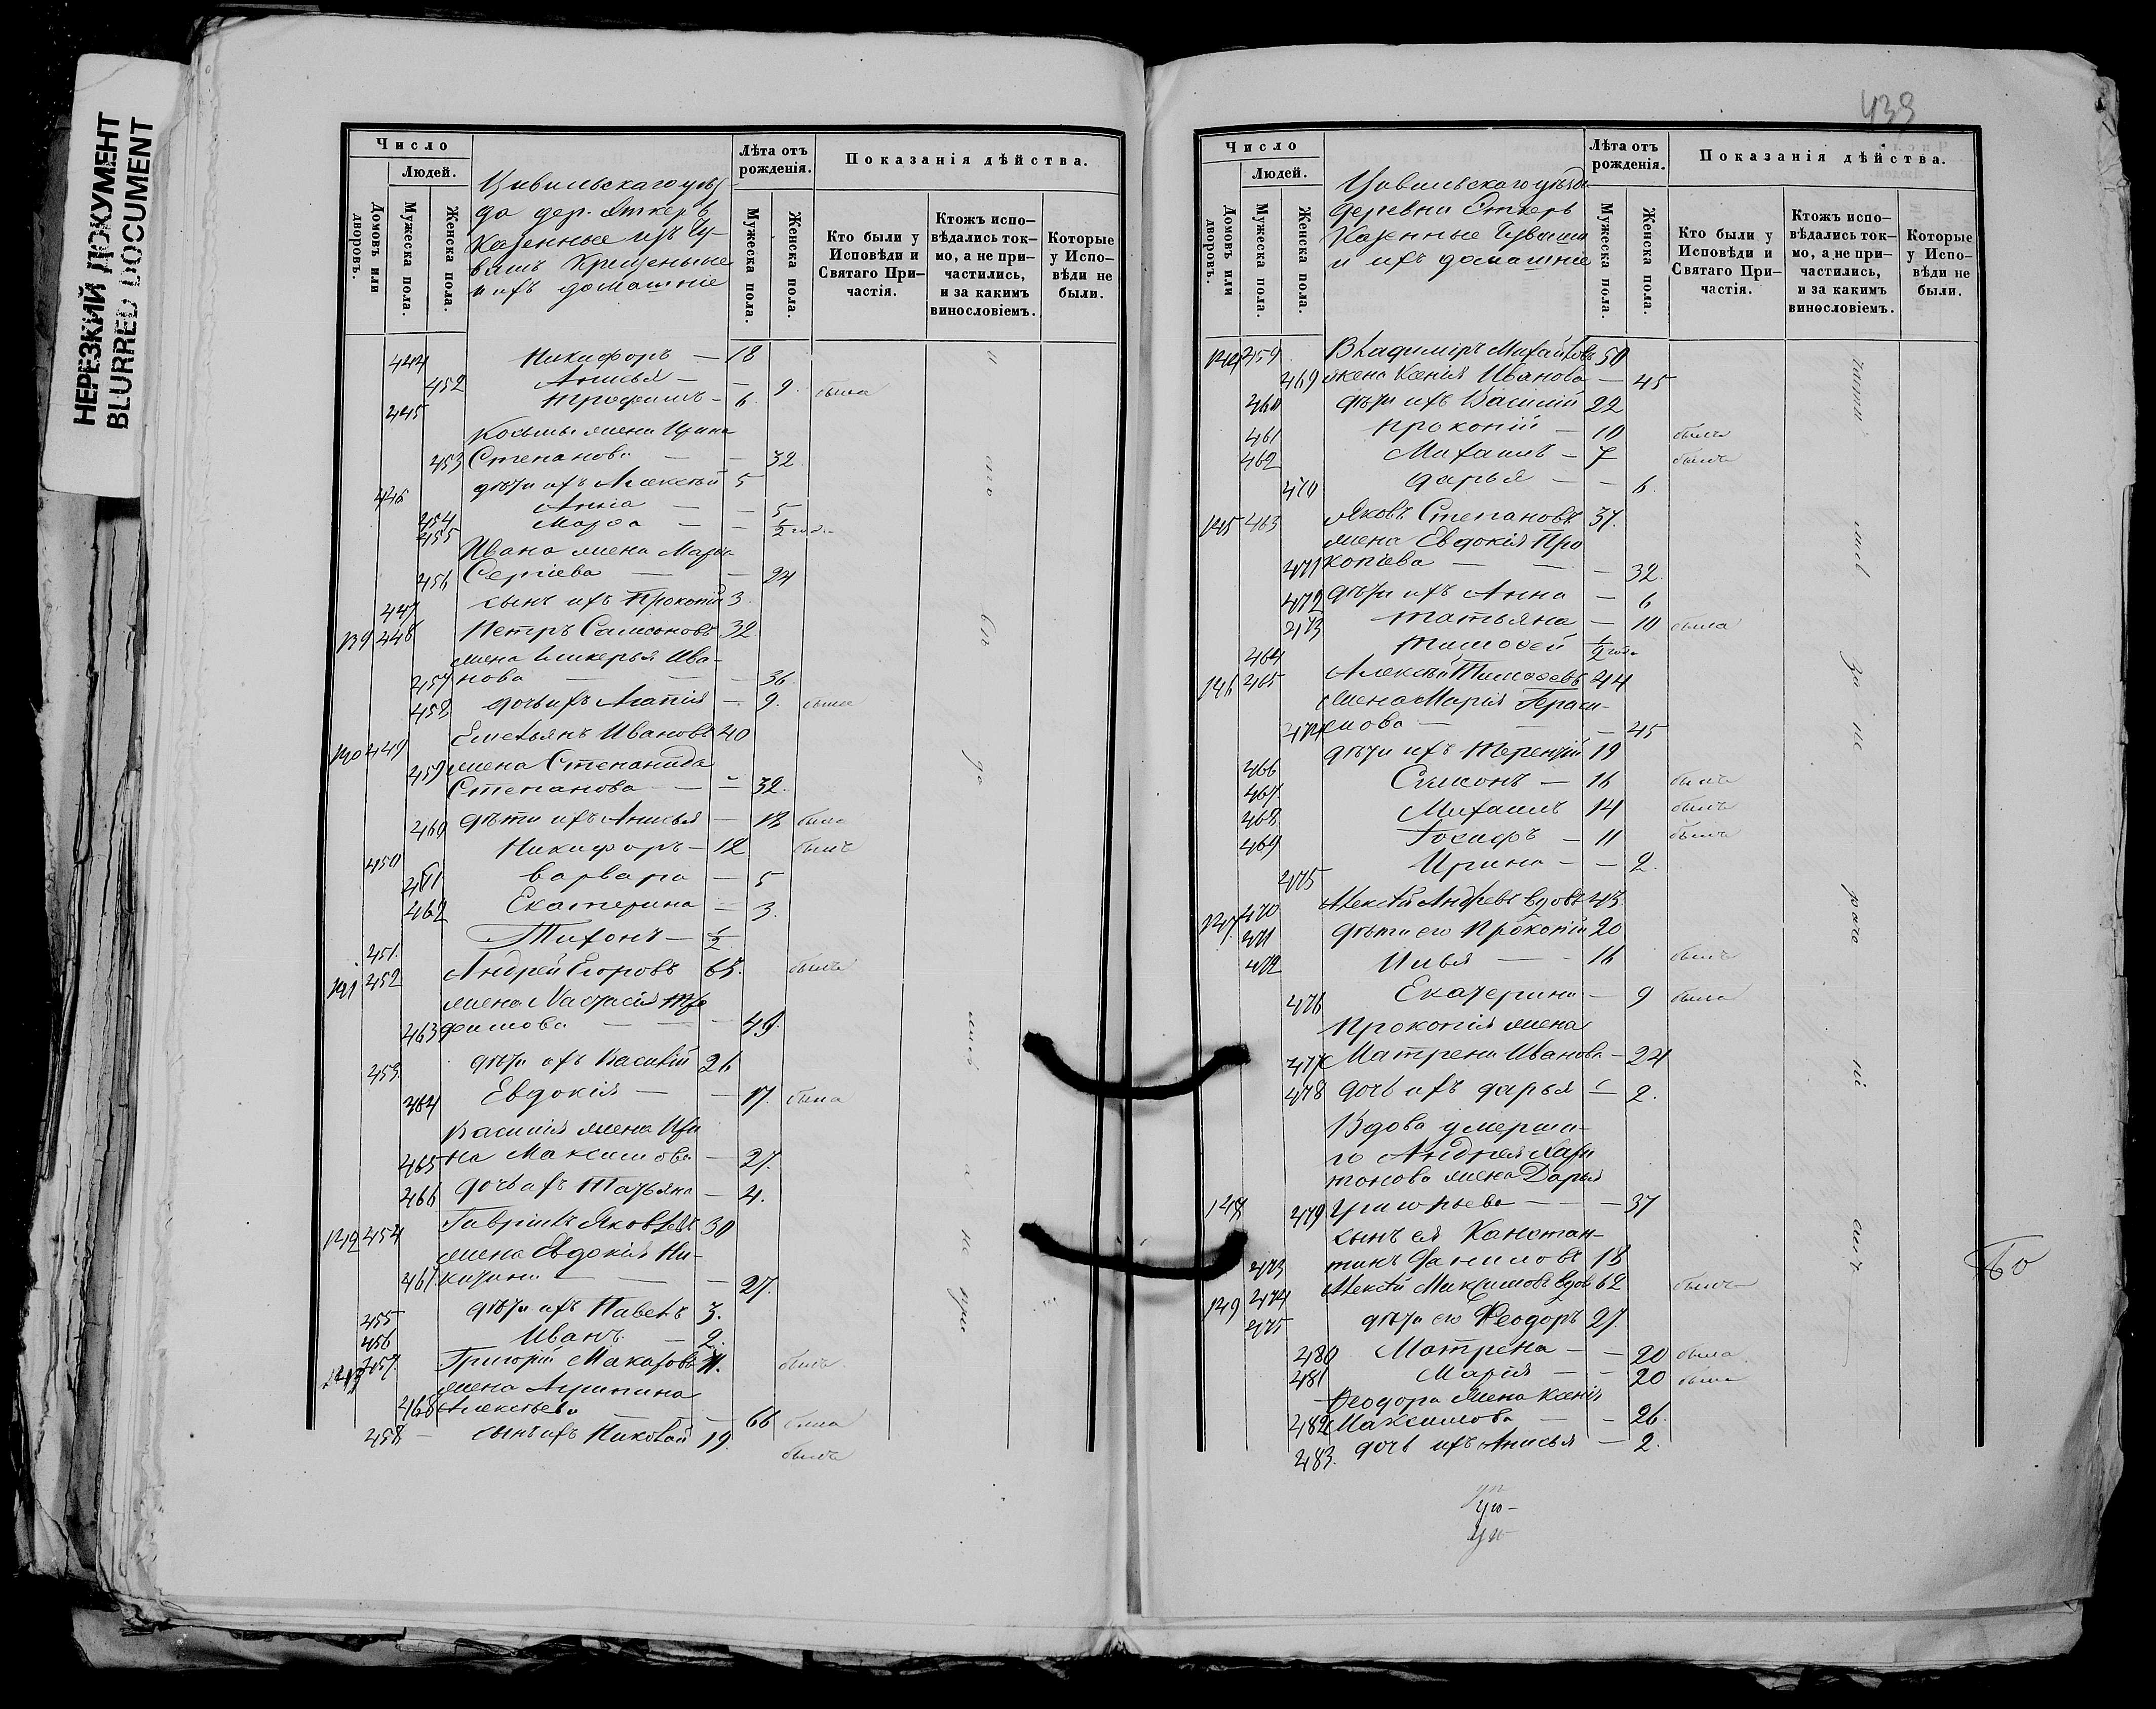 НЕРЕЗКИЙ ДОКУМЕНТ
BLURRED DOCUMENT
Число
Людей.
Домовъ или дворовъ.
Мужеска пола.
Женска пола.
Цивильскаго уѣз-
да дер.
Казенные изъ Чу-
вашъ Крещеные
и ихъ домашніе
Лѣта отъ рожденія.
Мужеска пола.
Женска пола.
Показанія дѣйства.
Кто были у Исповѣди и Святаго При-частія.
Ктожъ испо-вѣдались ток-мо, а не при-частились, и за какимъ винословіемъ.
Которые у Испо-вѣди не были.
444 Никифоръ — 18
452 Анисья — — 9. была
445 Трофимъ — 6.
Козьмы жена Ирина
453 Степанова — — 32.
446 дѣти ихъ Алексѣй 5
454 Анна — — 5
455 Марѳа — — 1/2 года
Ивана жена Марья
456 Сергіева — — 24
447 сынъ ихъ Прокопій 3.
139 448 Петръ Самсоновъ 32.
жена Гликерья Ива-
457 нова — — 36.
458 дочь ихъ Агапія — 9. была
140 449 Емельянъ Ивановъ 40
459 жена Степанида
Степанова — — 32.
460 дѣти ихъ Анисья — была
450 Никифоръ — 12 былъ
461 Варвара — 5
462 Екатерина — 3.
451. Тихонъ — 1/2
141 452 Андрей Егоровъ былъ
жена Настасія Тро
463 фимова — —
453. дѣти ихъ Василій 26
464 Евдокія — — 17. была
Василія жена Ири
465 на Максимова — 27.
466 дочь ихъ Татьяна — 4.
142 454 Гавріилъ Яковлевъ 30
жена Евдокія Ни-
467. — — 27.
455 дѣти ихъ Павелъ 3.
456 Иванъ — 2.
143 457 Григорій Макаровъ былъ
жена Агрипина
468 Алексѣева — — 66 была
458 сынъ ихъ Николай 19. былъ
439
Число
Людей.
Домовъ или дворовъ.
Мужеска пола.
Женска пола.
Цивильскаго уѣзда
деревни
Казенные Чуваши
и ихъ домашніе
Лѣта отъ рожденія.
Мужеска пола.
Женска пола.
Показанія дѣйства.
Кто были у Исповѣди и Святаго При-частія.
Ктожъ испо-вѣдались ток-мо, а не при-частились, и за какимъ винословіемъ.
Которые у Испо-вѣди не были.
144 459 Владиміръ Михайловъ 50
469 жена Ксенія Иванова — 45
460 дѣти ихъ Василій 22
461 Прокопій — 10 былъ
462 Михаилъ — 7 былъ
470 Дарья — — 6.
145 463 Яковъ Степановъ 37.
жена Евдокія Про
471 копіева — — — 32.
472 дѣти ихъ Анна — 6
473 Татьяна — 10 была
464 Тимоѳей 1/2 года
146 465 Алексѣй Тимоѳеевъ 44
жена Марія Гераси-
474 мова — — 45
466 дѣти ихъ Терентій 19
467 Симонъ — 16 былъ
468 Михаилъ 14 былъ
469 Іосифъ — 11 былъ
475 Ирина — — 2.
147 470 Алексѣй Андреевъ вдовъ 43.
471 дѣти его Прокопій 20
472 Илья — — 16 былъ
476 Екатерина — 9 была
Прокопія жена
477 Матрена Иванова — 24
478 дочь ихъ Дарья — 2.
Вдова умерша-
го Андрея Хари
тонова жена Дарья
148 479 Григорьева — — 37
сынъ ея Констан-
473 тинъ Даниловъ 18
149 474 Алексѣй Максимовъ вдов 62 былъ
475 дѣти его Ѳеодоръ 27.
480 Матрена — — 20 была
481 Марія — — 20 была
Ѳеодора жена Ксенія
482 Максимова — — 26.
483. дочь ихъ Анисья — 2.